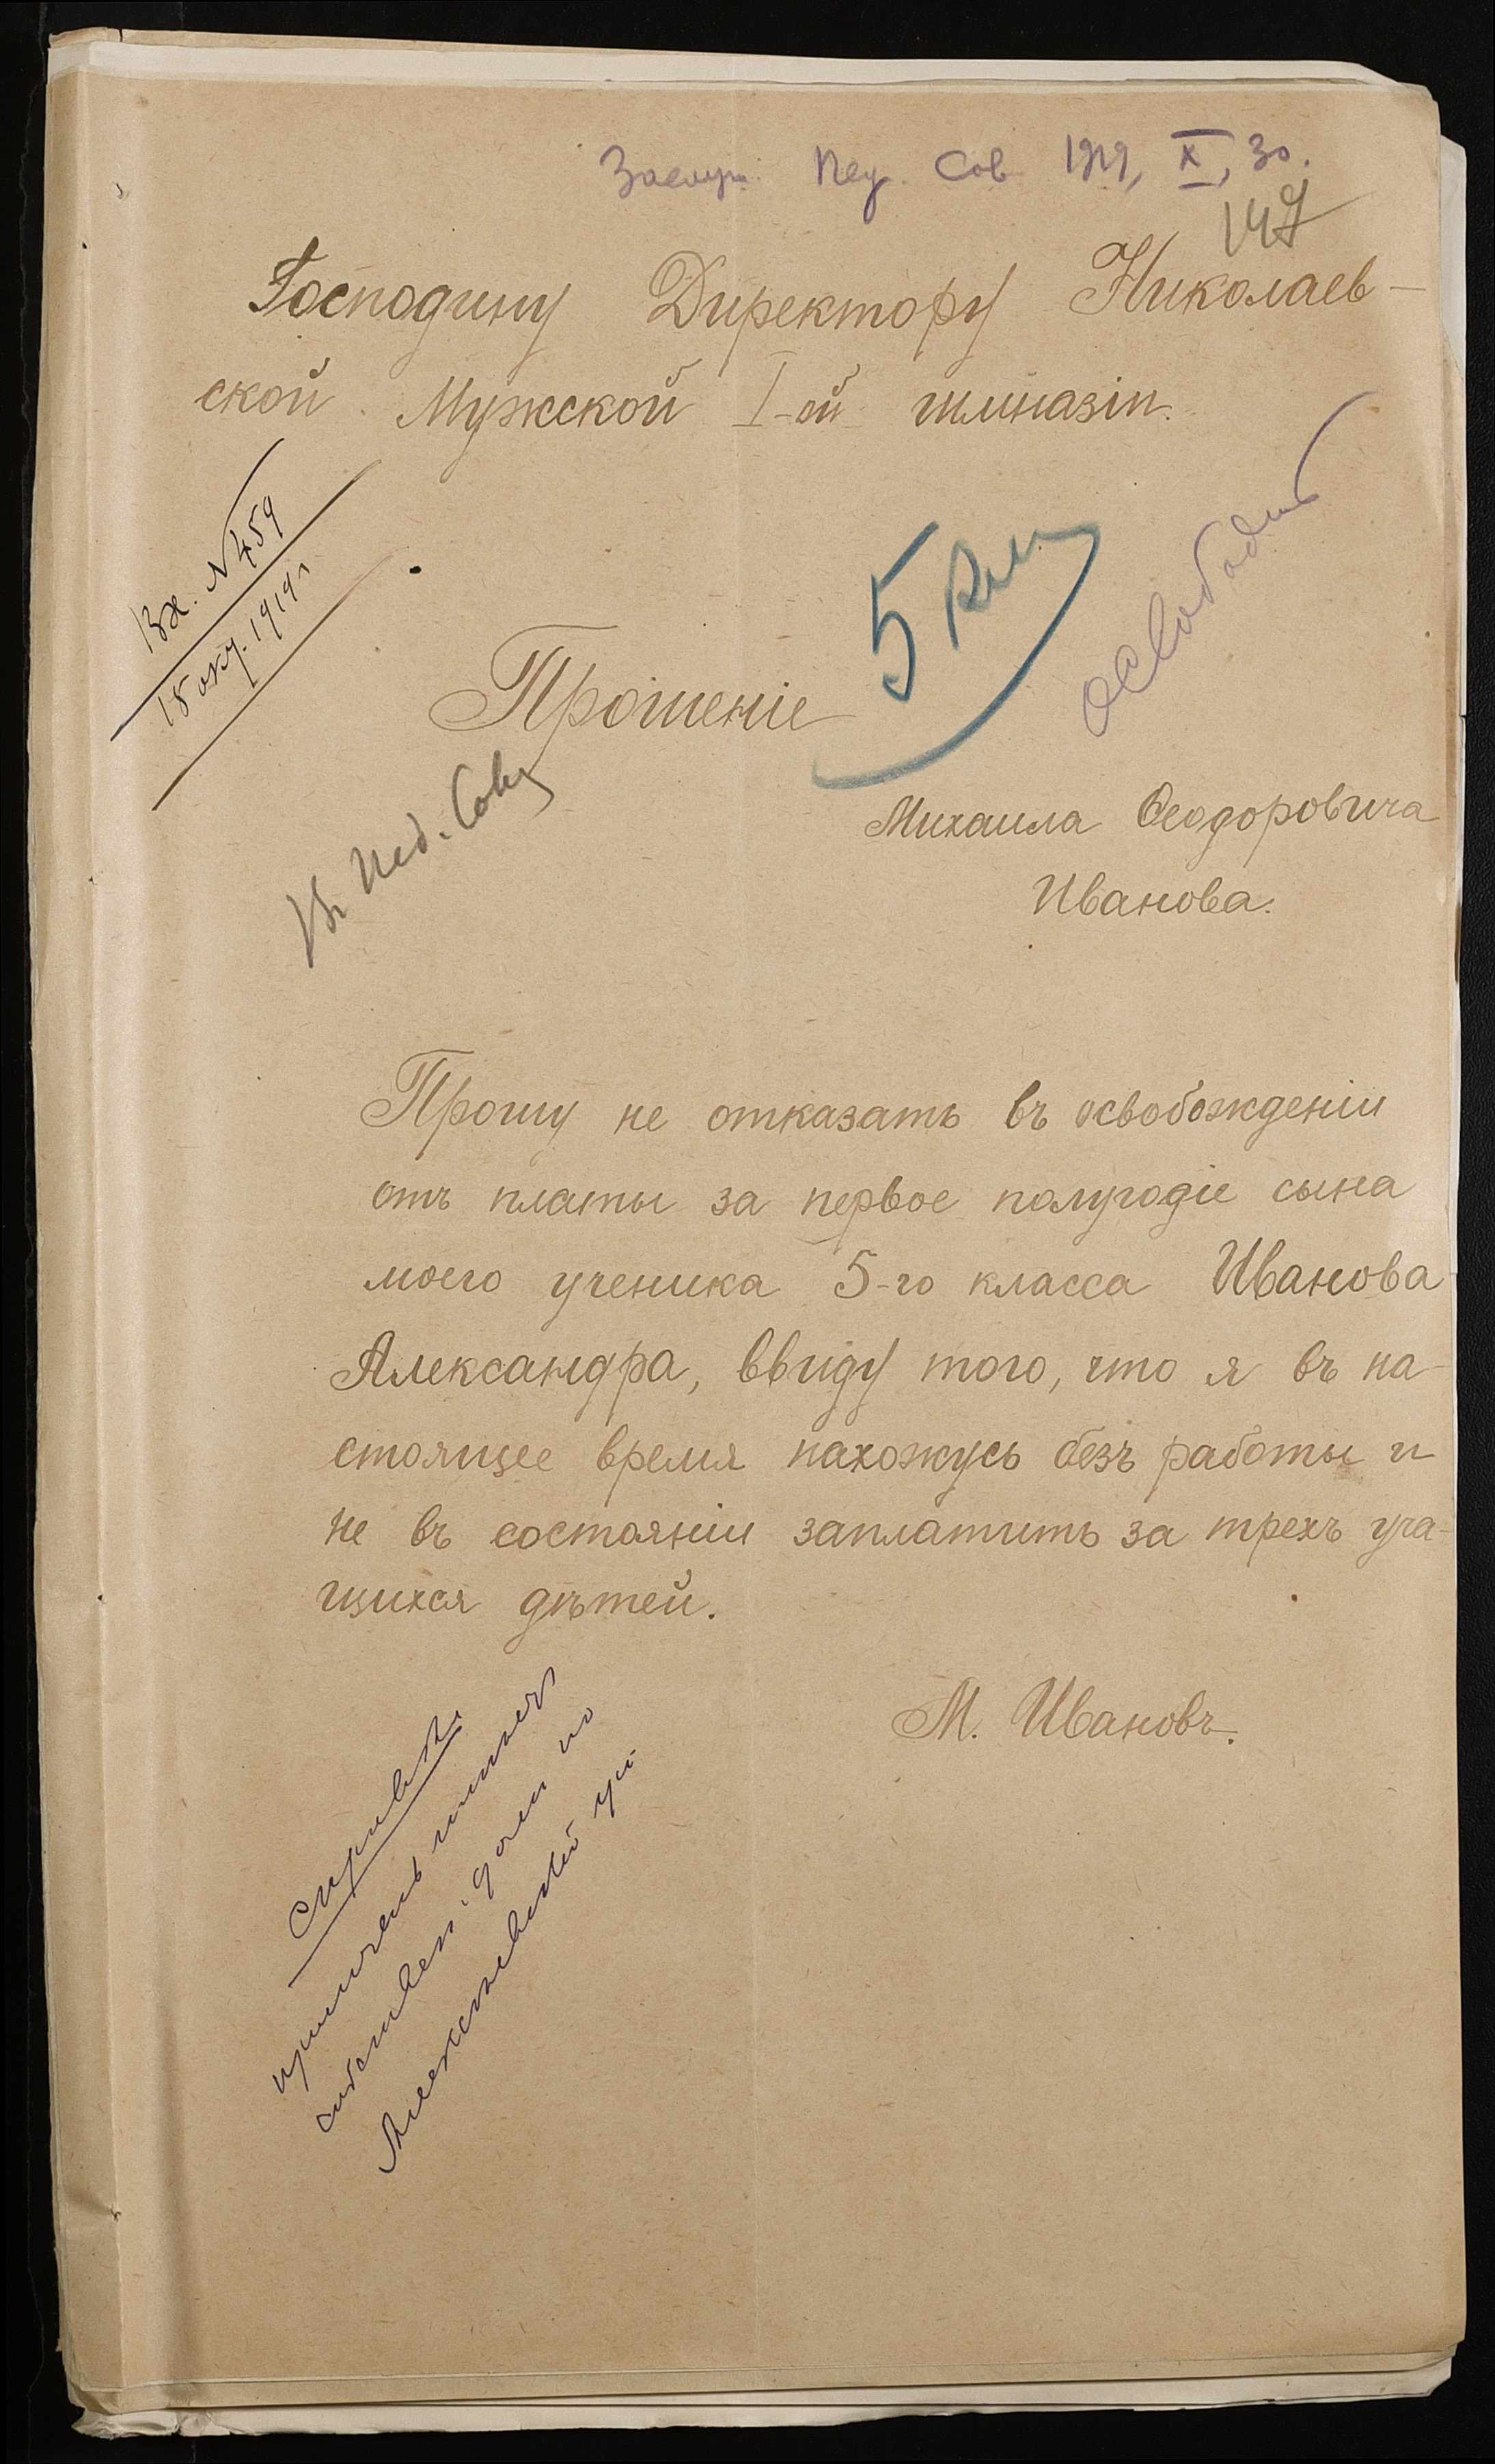 Заслуш. Пед. Сов 1919, X, 30.
147
Господину Директору Николаев-
ской Мужской I-ой гимназіи.
Вх. N 459
15 окт. 1919 г
5 кл
освободить
Прошеніе
Михаила Ѳеодоровича
Иванова.
Въ Пед. Совѣт
Прошу не отказать въ освобожденіи
отъ платы за первое полугодіе сына
моего ученика 5-го класса Иванова
Александра, ввиду того, что я въ на-
стоящее время нахожусь безъ работы и
не въ состояніи заплатить за трехъ уча-
щихся дѣтей.
М. Ивановъ.
Справка
проситель имѣетъ
собствен. домъ по
Алексѣевской ул.